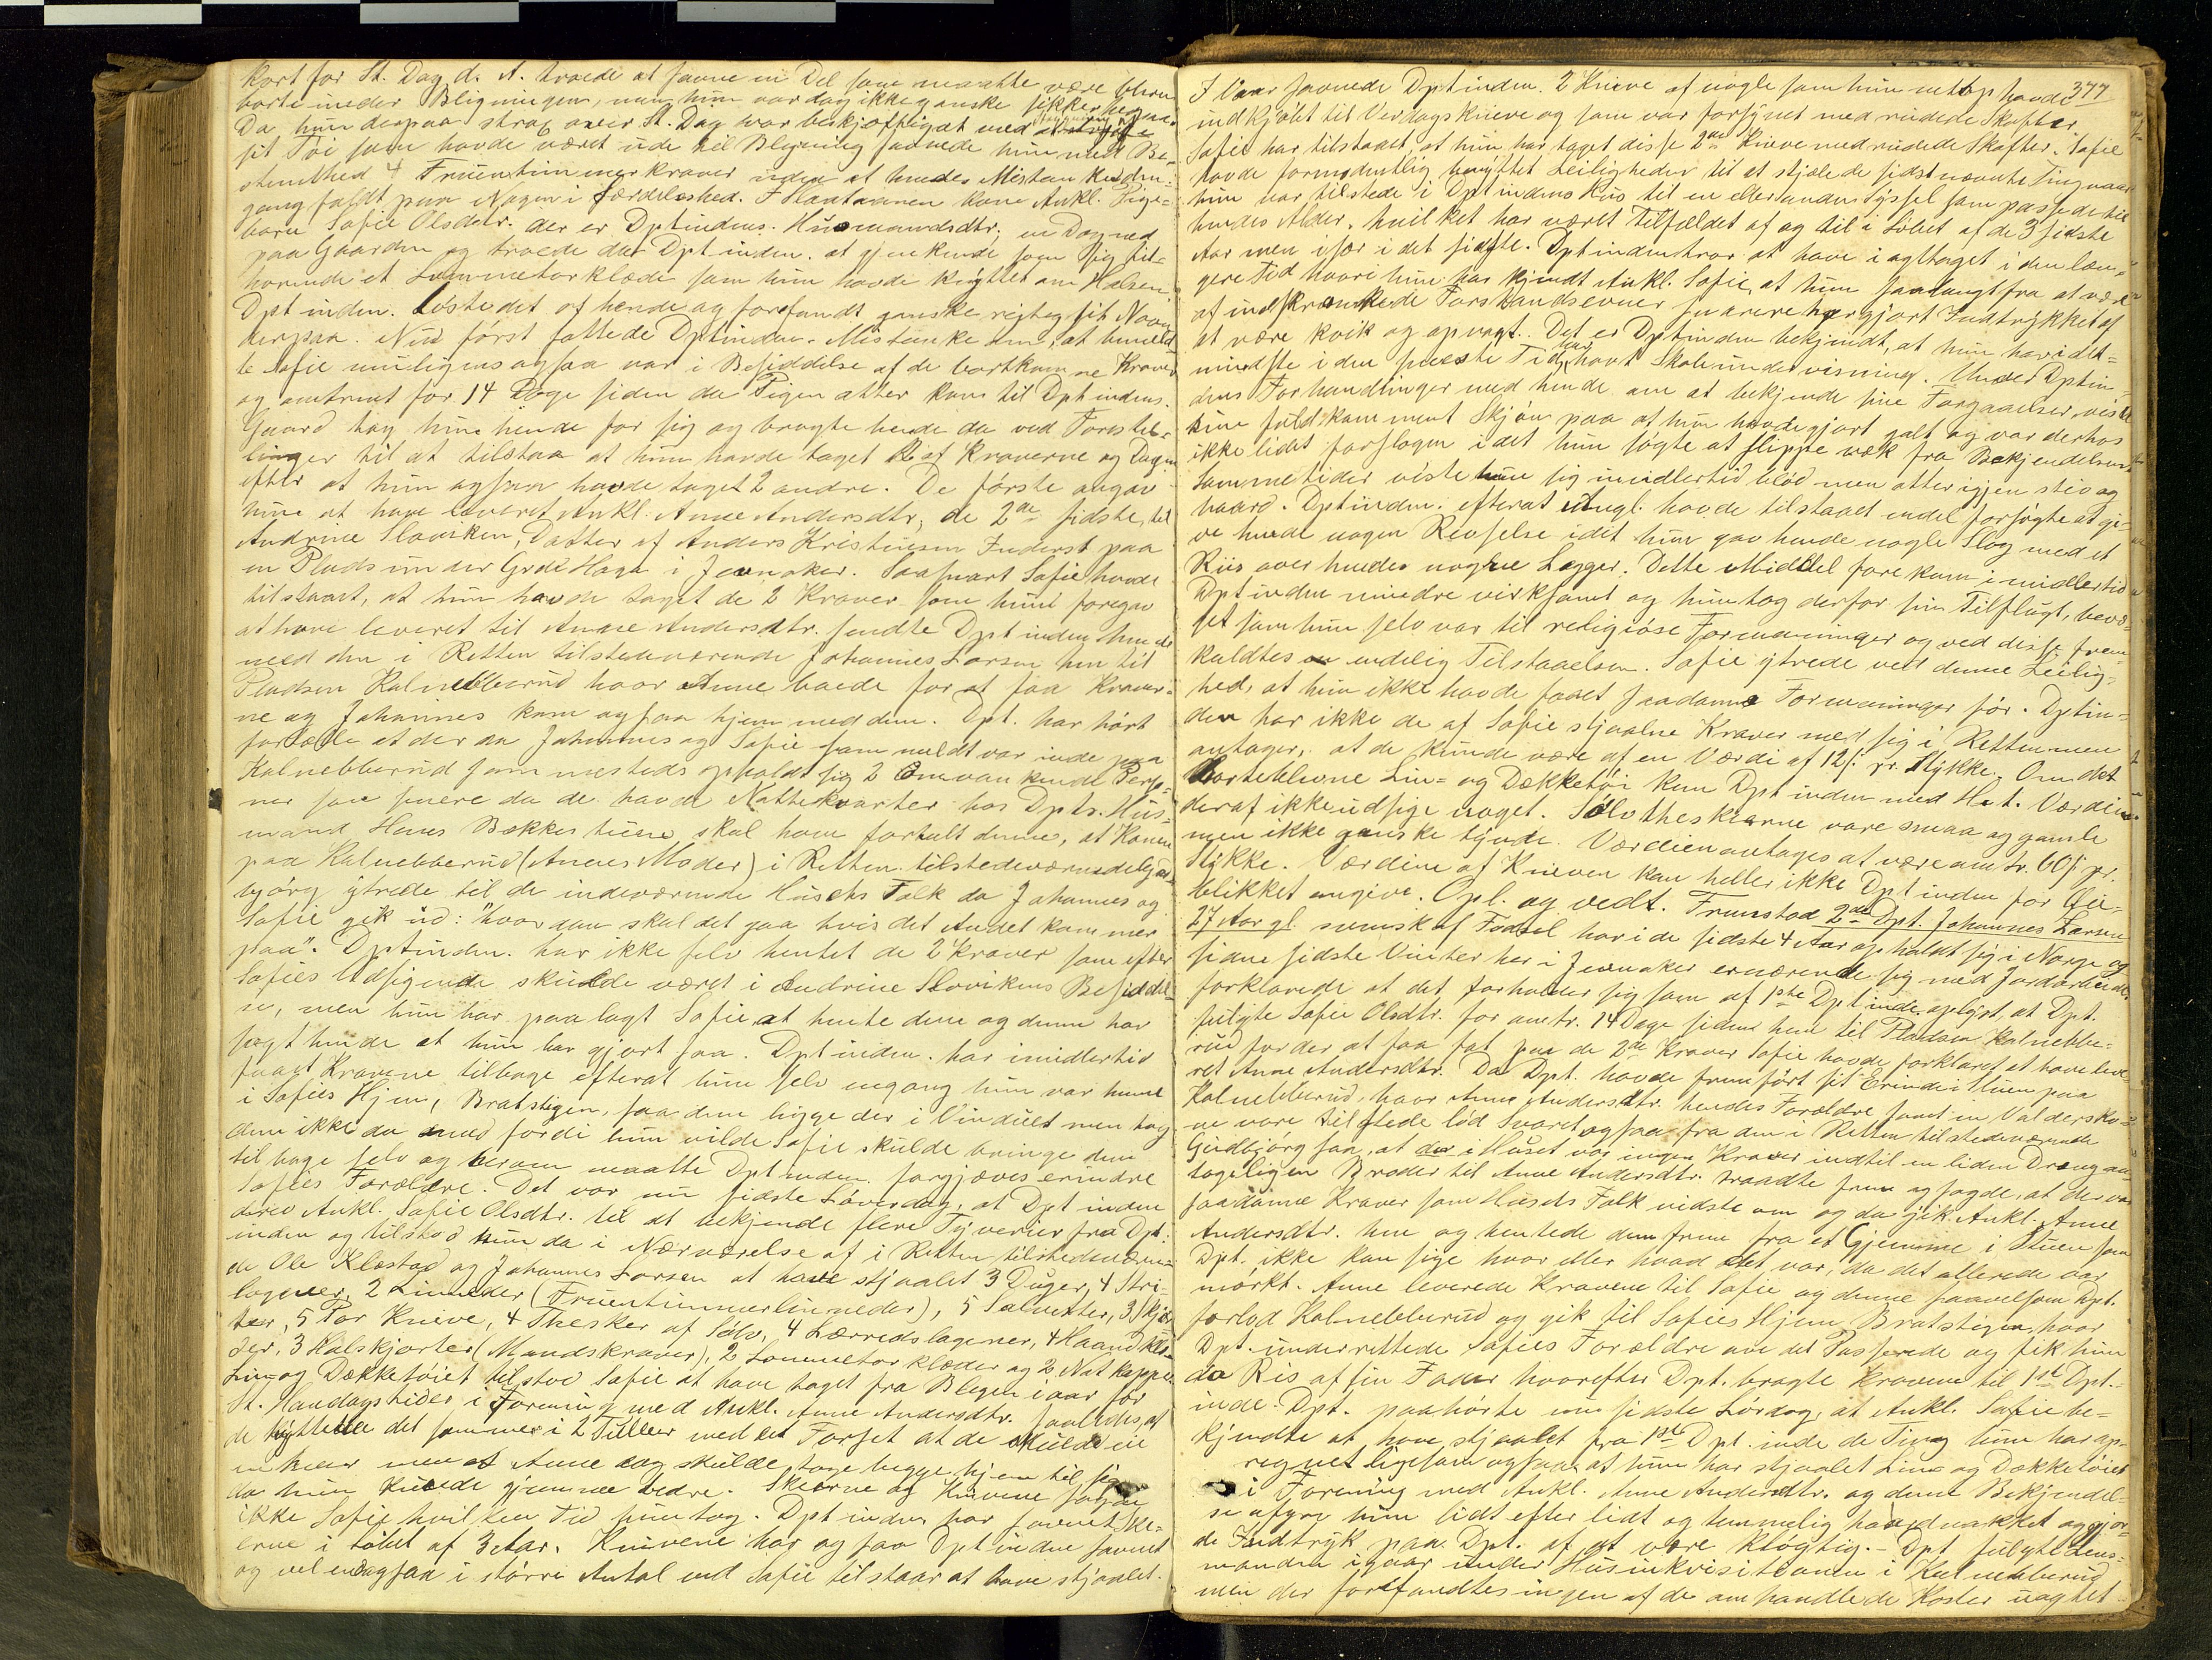 kort før St. Dag d. A. troede at savne en Del som maatte være bleven
borte under Blegningen, men hun var dog ikke ganske sikker herpaa.
Da hun derpaa strax over St. Dag var beskjæftiget med
sit Tøi som havde været ude til Blegning savnede hun med Be-
stemthed 4 Fruentimmerkraver uden at hendes Mistanke den-
gang faldt paa Nogen i Særdeleshed. I kom Ankl. Pige-
barn Sofie Olsdtr. der er Dptindens Husmandsdtr., en Dag ned
paa Gaarden og troede da Dptinden at gjenkjende som sig til-
hørende et Lommetørklæde som hun havde knyttet om Halsen.
Dptinden løste det af hende og forefandt ganske rigtig sit Navn
derpaa. Nu først fattede Dptinden Mistanke om, at bemeld-
te Sofie muligens ogsaa var i Besiddelse af de bortkomne Kraver
og omtrent for 14 Dage siden da Pigen atter kom til Dptindens
Gaard tog hun hende for sig og bragte hende da ved Forestil-
linger til at tilstaa at hun havde taget 2 af Kraverne og Dagen
efter at hun ogsaa havde taget 2 andre. De første angav
hun at have leveret Ankl. Anne Andersdtr., de 2de sidste til
Andrine Sloviken, Datter af Anders Kristiansen Inderst paa
en Plads under Grd. Haga i Jevnaker. Saasnart Sofie havde
tilstaaet, at hun havde taget de 2 Kraver som hun foregav
at have leveret til Anne Andersdtr. sendte Dptinden hende
med den i Retten tilstedeværende Johannes Larsen hen til
Pladsen Kalnebberud hvor Anne boede for at faa Kraver-
ne og Johannes kom ogsaa hjem med dem. Dpt. har hørt
fortælle at der da Johannes og Sofie som meldt var inde paa
Kalnebberud sammesteds opholdt sig 2 Omvankende Perso-
ner som senere da de havde Nattekvarter hos Dpts. Hus-
mand Hans Bækkestuen skal have fortalt denne, at Konen
paa Kalnebberud (Annes Moder) i Retten tilstedeværende Gud-
bjørg ytrede til de indeværende Husets Folk da Johannes og
Sofie gik ud: "hvordan skal det gaa hvis det Andet kommer
paa". Dptinden har ikke selv hentet de 2 Kraver som efter
Sofies Udsigende skulde været i Andrine Slovikens Besiddel-
se, men hun har paalagt Sofie at hente dem og denne har
sagt hende at hun har gjort saa. Dptinden har imidlertid
faaet Kravene tilbage efterat hun selv engang hun var henne
i Sofies Hjem, Bratstigen, saa dem ligge der i Vinduet men tog
dem ikke da med fordi hun vilde Sofie skulde bringe dem
tilbage selv og herom maatte Dptinden forgjæves erindre
Sofies Forældre. Det var nu sidste Løverdag, at Dptinden
drev Ankl. Sofie Olsdtr. til at bekjende flere Tyverier fra Dpt-
inden og tilstod hun da i Nærværelse af i Retten tilstedeværen-
de Ole Klæstad og Johannes Larsen at have stjaalet 3 Duger, 4 Stri-
lagener, 2 Linneder (Fruentimmerlinneder), 5 Salvetter, 3 Skjør-
ter, 5 Par Knive, 4 Thesker af Sølv, 4 Lærredslagener, 4 Haandklæ-
der, 3 Halskjorter (Mandskraver), 2 Lommetørklæder og 2 Natkapper.
Lin- og Dækketøiet tilstod Sofie at have taget fra Blegen iaar før
St. Handagstider i Forening med Ankl. Anne Andersdtr. saaledes at
de byttede det sammen i 2 Tuller med det Forset at de skulde ha
en hver men at Anne dog skulde tage begge hjem til sig
da hun kunde gjemme bedre. Skeerne og Knivene sagde
ikke Sofie hvilken Tid hun tog. Dptinden har savnet Ske-
erne i Løbet af 3 Aar. Knivene har ogsaa Dptinden savnet
og vel endogsaa i større Antal end Sofie tilstaar at have stjaalet.
377
I Vaar savnede Dptinden 2 Knive af nogle som hun netop havde
indkjøbt til Verdagsknive og som var forsynet med rudede Skafter.
Sofie har tilstaaet, at hun har taget disse 2de Knive med rudede Skafter. Sofie
havde formodentlig benyttet Leiligheden til at stjæle de sidstnævnte Ting naar
hun var tilstede i Dptindens Hus til en eller anden Syssel som passede til
hendes Alder, hvilket har været Tilfældet af og til i Løbet af de 3 sidste
Aar men især i det sidste. Dptinden tror at have iagttaget i den læn-
gere Tid hvori hun har kjendt Ankl. Sofie, at hun saalangt fra at være
af indskrænkede Forstandsevner snarere har gjort Indtrykket af
at være kvik og opvagt. Det er Dptinden bekjendt, at hun har idet-
mindste i den seneste Tid har havt Skoleundervisning. Under Dptin-
dens Forhandlinger med hende om at bekjende sine Forgaaelser viste
hun fuldkomment Skjøn paa at hun havde gjort galt og var derhos
ikke lidet forslagen idet hun søgte at slippe væk fra Bekjendelsen.
Sommetider viste hun sig imidlertid blød men atter igjen stiv og
haard. Dptinden efterat Angl. havde tilstaaet endel forsøgte at gi-
ve hende nogen Revselse idet hun gav hende nogle Slag med et
Riis over hendes nøgne Lægger. Dette Middel forekom imidlertid
Dptinden mindre virksomt og hun tog derfor sin Tilflugt, bevæ-
get som hun selv var til religiøse Formaninger og ved disse frem-
kaldtes endelig Tilstaaelsen. Sofie ytrede ved denne Leilig-
hed, at hun ikke havde faaet saadanne Formaninger før. Dptin-
den har ikke de af Sofie stjaalne Kraver med sig i Retten men
antager, at de kunde være af en Værdi af 12 ß pr. Stykke. Om det
borteblevne Lin- og Dækketøi kan Dptinden med H. t. Værdien
deraf ikke udsige noget. Sølvtheskeerne vare smaa og gamle
men ikke ganske tynde. Værdien antages at være omtr. 60 ß pr.
Stykke. Værdien af Kniven kan heller ikke Dptinden for Øie-
blikket angive. Opl. og vedt. Fremstod 2de Dpt. Johannes Larsen
27 Aar gl. svensk af Fødsel har i de sidste 4 Aar opholdt sig i Norge og
siden sidste Vinter her i Jevnaker ernærende sig med Jordarbeide
forklarede at det forholder sig som af 1ste Dptinde oplyst, at Dpt.
fulgte Sofie Olsdtr. for omtr. 14 Dage siden hen til Pladsen Kalnebbe-
rud for der at faa fat paa de 2de Kraver Sofie havde forklaret at have leve-
ret Anne Andersdtr. Da Dpt. havde fremført sit Erinde i Stuen paa
Kalnebberud, hvor Anne Andersdtr. hendes Forældre samt en Valdersko-
ne vare tilstede lød Svaret ogsaa fra den i Retten tilstedeværende
Gudbjørg saa, at der i Huset var ingen Kraver indtil en liden Dreng an-
tageligen Broder til Anne Andersdtr. traadte frem og sagde, at der var
saadanne Kraver som Husets Folk vidste om og da gik Ankl. Anne
Andersdtr. hen og hentede dem frem fra et Gjemme i Stuen som
Dpt. ikke kan sige hvor eller hvad det var, da det allerede var
mørkt. Anne leverede Kravene til Sofie og denne saavelsom Dpt.
forlod Kalnebberud og gik til Sofies Hjem Bratstigen, hvor
Dpt. underrettede Sofies Forældre om det Passerede og fik hun
da Ris af sin Fader hvorefter Dpt. bragte Kravene til 1ste Dpt-
inde. Dpt. paahørte nu sidste Lørdag, at Ankl. Sofie be-
kjendte at have stjaalet fra 1ste Dptinde de Ting hun har op-
regnet ligesom ogsaa at hun har stjaalet Lin- og Dækketøiet
i Forening med Ankl. Anne Andersdtr. og denne Bekjendel-
se afgav hun lidt efter lidt og temmelig haardnakket og gjor-
de Indtryk paa Dpt. af at være kløgtig. - Dpt. fulgte Lens-
manden igaar under Husinkvisitionen i Kalnebberud
men der forefandtes ingen af de omhandlede Koster uagtet